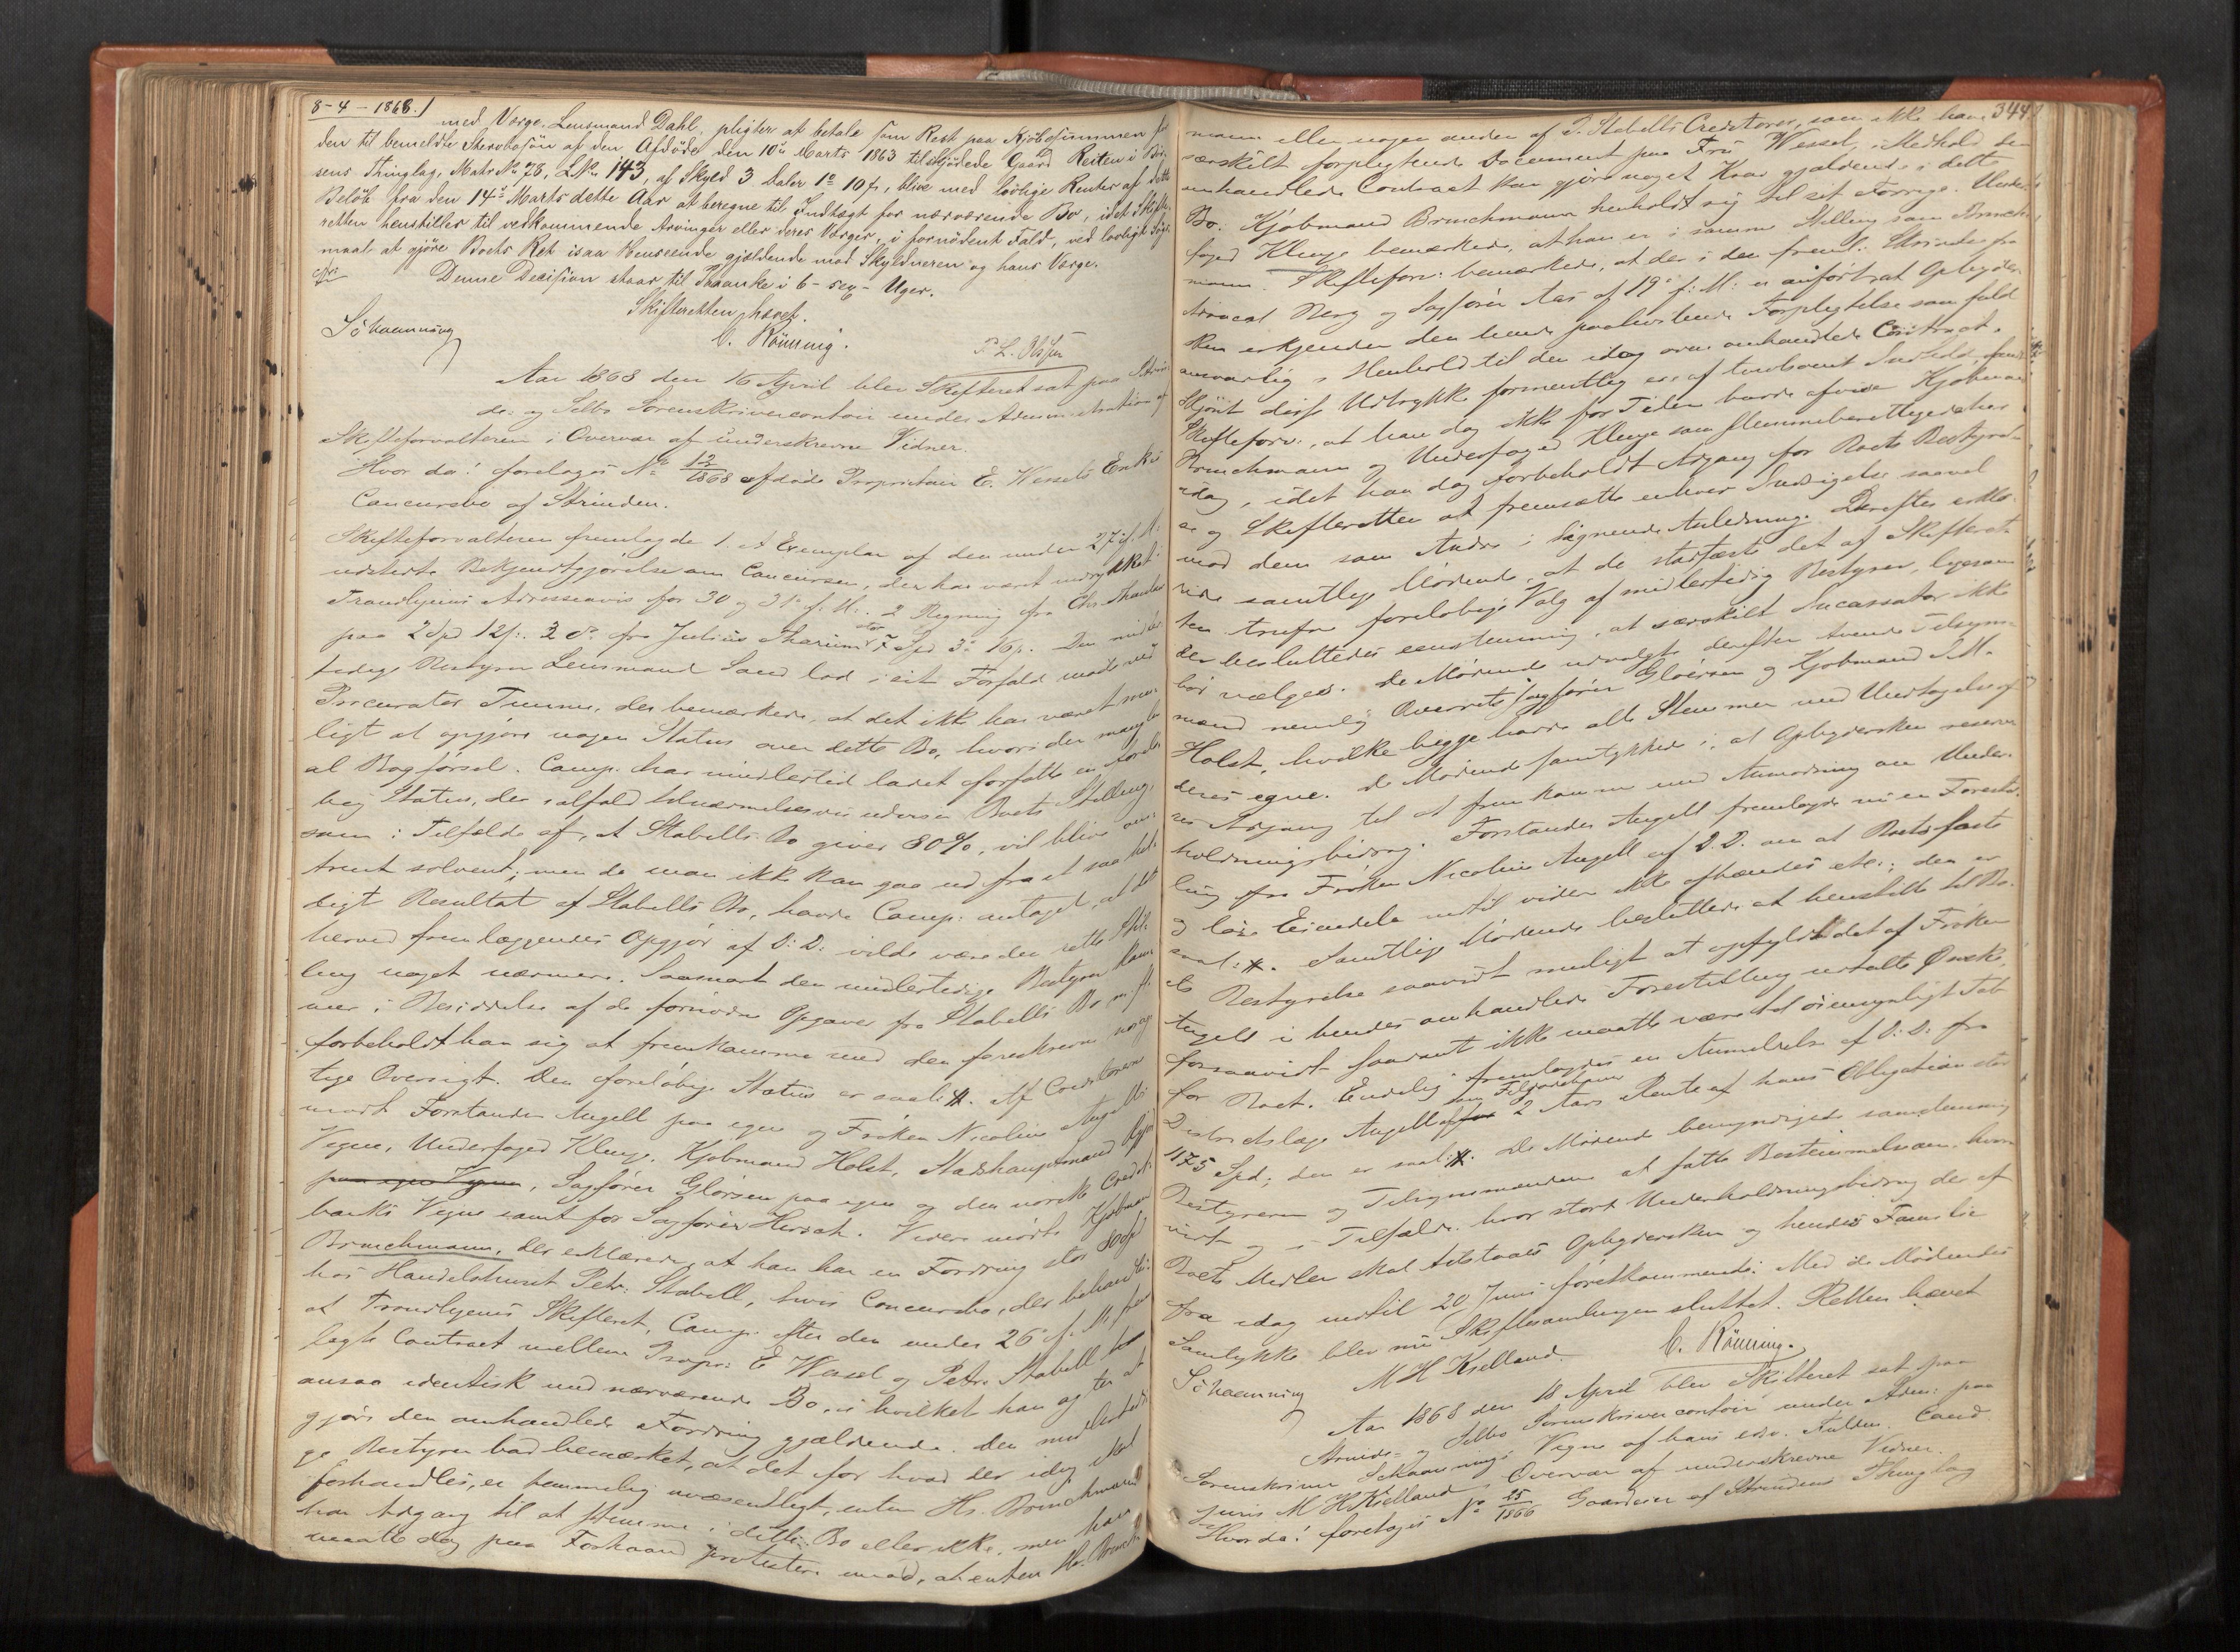 8-4-1868.
med Værge, Lensmand Dahl, pligter at betale som Rest paa Kjöbesummen for
den til bemeldte Stervbosön af den Afdöde den 10de Marts 1863 tilskjödede Gaard Reiten i Bir-
sens Thinglag, Matr No 78, LNo 143, af Skyld 3 Daler 1 10 s, blive med lovlige Renter af dette
Belöb fra den 14de Marts dette Aar at beregne til Indtægt for nærværende Bo, idet Skifte-
retten henstiller til vedkommende Arvinger eller deres Værger, i fornödent Fald, ved lovligt Sögs-
maal at gjöre Boets Ret isaa Henseende gjældende mod Skyldneren og hans Værge.
Denne Decision staar til Paaanke i 6 - sex - Uger.
Skifteretten hævet.
Schanning
C. Rönning.
P. L. Olsen
Aar 1868 den 16 April blev Skifteret sat paa Strin-
de- og Selbo Sorenskrivercontoir under Administration af
Skifteforvalteren i Overvær af underskrevne Vidner.
Hvor da! foretoges No 12/1868 afdöde Proprietair E. Wessels Enkes
Concursbo af Strinden.
Skifteforvalteren fremlagde 1. et Exemplar af den under 27 f. M.
udstedte Bekjendtgjörelse om Concursen, der har været indrykket
Trondhjems Adresseavis for 30 og 31 f. M. 2 Regning fra Chr. Thaulow
paa 2 Spd 12 s. 3 do fra Julius Tharum stor 7 Spd 3 16 s. Den midler-
tidige Bestyrer Lensmand Sand lod i sit Forfald möde ved
Procurator Tumme, der bemærkede, at det ikke har været mu-
ligt at opgjöre nogen Status over dette Bo, hvori der mangler
al Bogförsel. Comp. har imidlertid ladet forfatte en forelö-
big Status, der ialfald tilnærmelsesvis udviser Boets Stilling,
som i Tilfælde af, at Stabells Bo giver 80 %, vil blive om-
trent solvent; men da man ikke kan gaa ud fra et saa hel-
digt Resultat af Stabells Bo, havde Comp. antaget, at det
herved fremlæggendes Opgjör af D. D. vilde være den rette Stil-
ling noget nærmere. Saasnart den midlertidige Bestyrer kom-
mer i Besiddelse af de fornödne Opgaver fra Stabells Bo m. fl.
forbeholdt han sig at fremkomme med den foreskrevne nöiag-
tige Oversigt. Den forelöbige Status er saal. Af Creditorerne
mödt Forstander Angell paa egne og Fröken Nicoline Angells
Vegne, Underfoged Klingе, Kjöbmand Holst, Stadshauptmand
paa egne Vegne, Sagförer Glörsen paa egne og den norske Credit-
banks Vegne samt for Sagförer Hirsch. Videre mödte Kjöbmand
Bruchmann, der erklærede, at han har en Fordring stor 80 Spd
hos Handelshuset Petr. Stabell, hvis Concursbo, der behandles
at Trondhjems Skifteret, Comp. efter den under 26 f. M. frem-
lagte Contract mellem Propr. E Wessel og Petr. Stabell
ansaa identisk med nærværende Bo, i hvilket han agter at
gjöre den omhandlede Fordring gjældende. Den midlertidi-
ge Bestyrer bad bemærket, at det for hvad der idag skal
forhandles, er temmelig uvæsentligt, enten Hr. Bruchmann
har Adgang til at stemme i dette Bo eller ikke, men han
maatte dog paa Forhaand protestere imod, at enten Hr. Bruch-
344
mann eller nogen anden af P. Stabells Creditorer, som ikke have
særskilt forpligtende Document paa Fru Wessel, i Medhold den
omhandlede Contract kan gjöre noget Krav gjældende i dette
Bo. Kjöbmand Bruchmann henholdt sig til sit Forrige. Under-
foged Klinge bemærkede, at han er i samme Stilling som Bruch-
mann. Skifteforv. bemærkede, at der i den freml. Skrivelse fra
Advocat Berg og Sagförer Aas af 19 f. M. er anfört, at Opbyder-
sken erkjender den hende paahvilende Forpligtelse som fuld
ansvarlig i Henhold til den idag oven omhandlede Contract.
Skjönt disse Udtrykke formentlig ere af tvivlsomt Indhold, fandt
Skifteforv., at han dog ikke for Tiden burde afvise Kjöbmand
Bruchmann og Underfoged Klinge som stemmeberettigede her
idag, idet han dog forbeholdt Adgang for Boets Bestyrel-
se og Skifteretten at fremsætte enhver Indsigelse saavel
mod dem som Andre i lignende Anledning. Derefter erklæ-
rede samtlige Mödende, at de stadfæste det af Skifteret-
ten trufne forelöbige Valg af midlertidig Bestyrer, ligesom
der besluttedes eenstemmig, at særskilt Incassator ikke
bör vælges. De Mödende udvalgte derefter tvende Tilsyns-
mænd nemlig Overrets Sagförer Glörsen og Kjöbmand I. M.
Holst, hvilke begge havde alle Stemmer med Undtagelse af
deres egne. De Mödende samtykkede i, at Opbydersken reserve-
res Adgang til at fremkomme med Anmodning om Under-
holdningsbidrag. Forstander Angell fremlagde nu en Forestil-
ling fra Fröken Nicoline Angell af D. D. om at Boets faste
og löse Eiendele indtil videre ikke afhændes etc.; den er
saal. Samtlige Mödende besluttede at henstille til Bo-
ets Bestyrelse saavidt muligt at opfylde det af Fröken
Angell i hendes omhandlede Forestilling udtalte Önske,
forsaavidt saadant ikke maatte være til öiensynligt Tab
for Boet. Endelig fremlagdes en Anmeldelse af D. D. fra
Distriktslæge Angell for 2 Aars Rente af hans Obligation stor
1175 Spd; den er saal. De Mödende bemyndigede samstemmig
Bestyreren og Tilsynsmændene at fatte Bestemmelse om, hvor-
vidt og i Tilfælde hvor stort Underholdningsbidrag der af
Boets Midler skal tilstaaes Opbydersken og hendes Familie
fra idag indtil 20 Juni förstkommende. Med de Mödendes
Samtykke blev nu Skiftesamlingen sluttet. Retten hævet
Schanning
M H Kielland.
C. Rönning.
Aar 1868 den 18 April blev Skifteret sat paa
Strinde- og Selbo Sorenskrivercontoir under Adm. paa
Sorenskriver Schannings Vegne af hans edsv. Fuldm. Cand.
juris M H Kielland i Overvær af underskrevne Vidner.
Hvor da! foretoges No 25/1866 Gaardeier af Strindens Thinglag